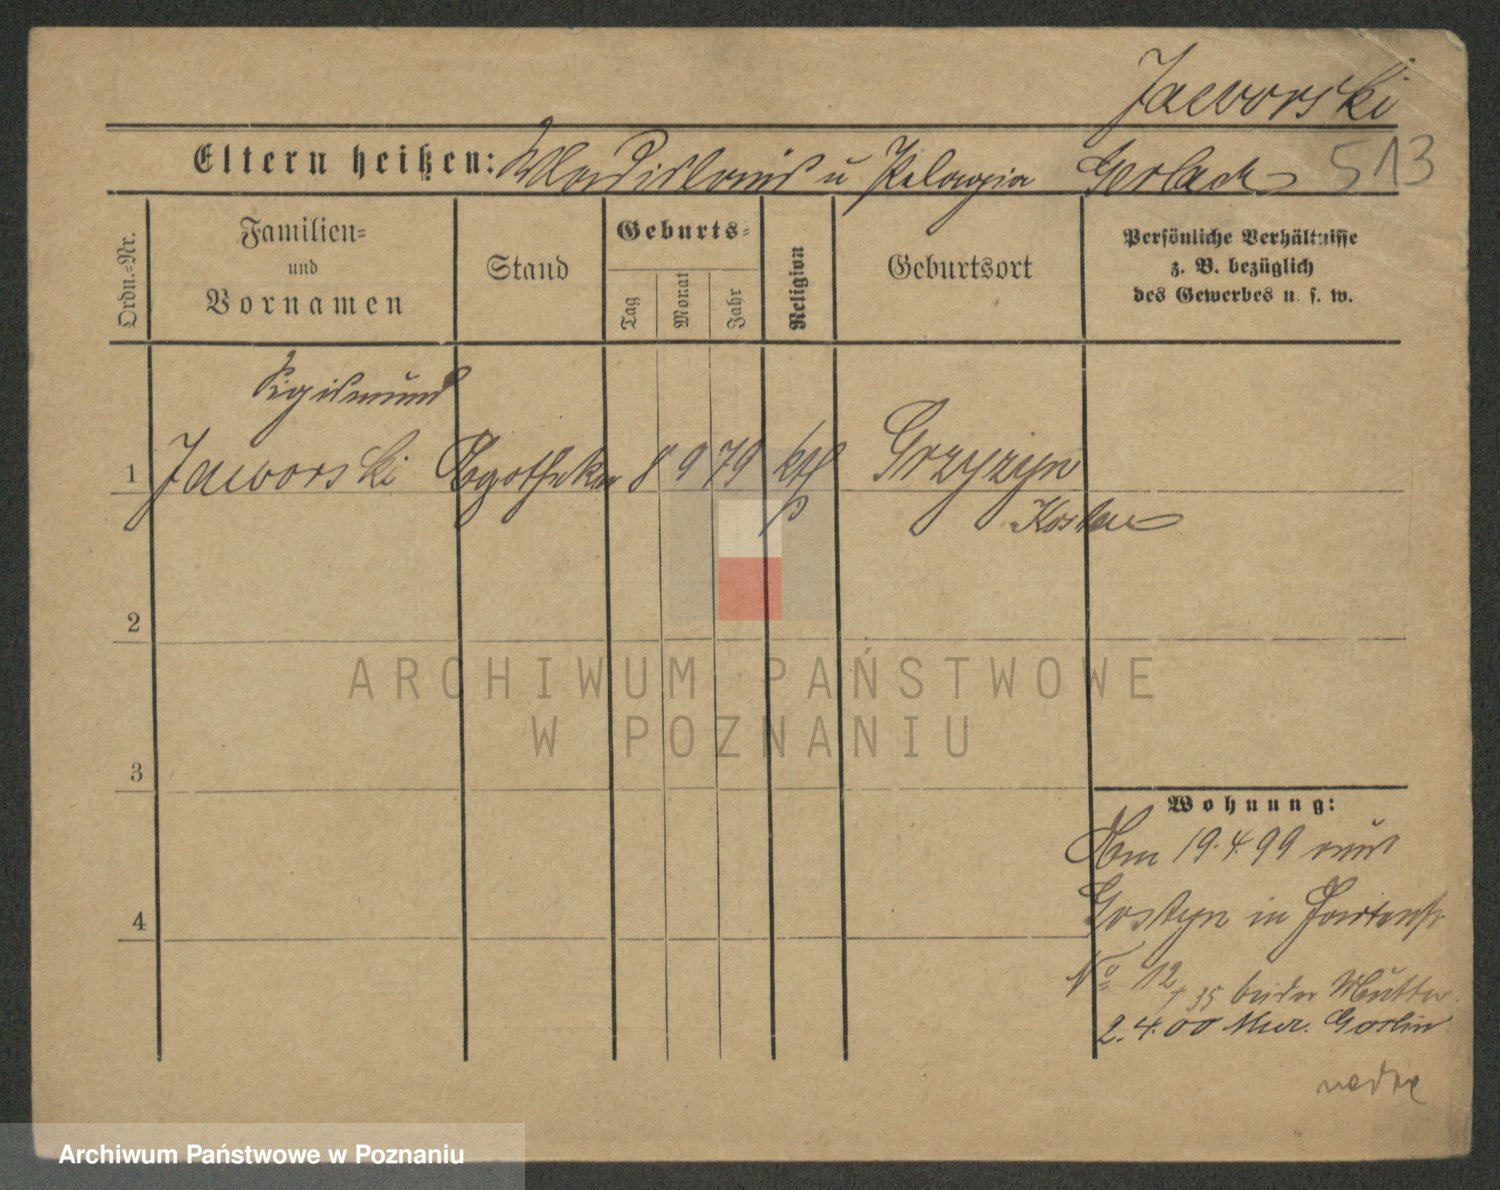 Jaworski
Eltern heißen: Wladislaus u Pelagia Gerlach 513
Ordn.-Nr.
Familien-
und
Vornamen
Stand
Geburts-
Tag
Monat
Jahr
Religion
Geburtsort
Persönliche Verhältnisse
z. B. bezüglich
des Gewerbes u. s. w.
Sigismund
1 Jaworski Apotheker 8 9 79 kth Grzyzyn
Kosten
2
ARCHIWUM PAŃSTWOWE
W POZNANIU
3
Wohnung:
Am 19.4.99 aus
4
Gostyn in
No 12 35 bei der Mutter
2.4.00 Mur. Goslin
Archiwum Państwowe w Poznaniu